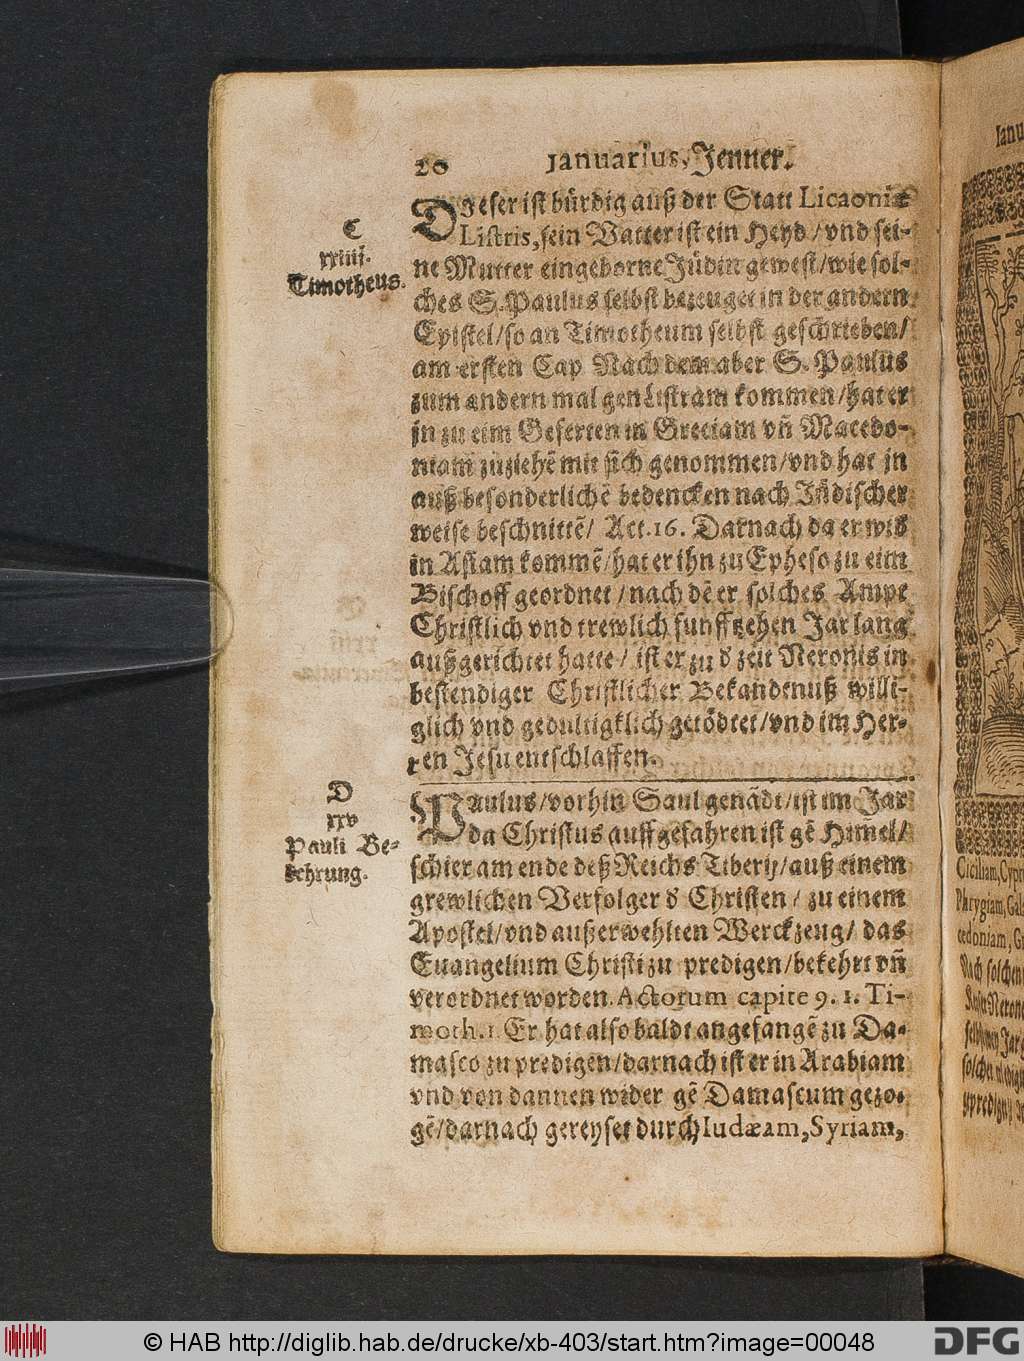 20 Ianuarius, Jenner.
C
xxiiij.
Timotheus.
DIeser ist bürdig auß der Statt Licaoniæ
Listris, sein Vatter ist ein Heyd / vnd sei-
ne Mutter ein geborne Jüdin gewest / wie sol-
ches S. Paulus selbst bezeuget in der andern
Epistel / so an Timotheum selbst geschrieben /
am ersten Cap Nach dem aber S. Paulus
zum andern mal gen Listram kommen / hat er
jn zu eim Geferten in Greciam vñ Macedo-
niam zůziehē mit sich genommen / vnd hat jn
auß besonderlichē bedencken nach Jüdischer
weise beschnittē / Act. 16. Darnach da er wid
in Asiam kommē / hat er ihn zu Epheso zu eim
Bischoff geordnet / nach dē er solches Ampt
Christlich vnd trewlich funfftzehen Jar lang
außgerichtet hatte / ist er zu d zeit Neronis in
bestendiger Christlicher Bekandtnuß willi-
glich vnd gedultigklich getödtet / vnd im Her-
ren Jesu entschlaffen.
D
xxv
Pauli Be-
kehrung.
PAulus / vorhin Saul genādt / ist im Jar
da Christus auffgefahren ist gē Himel /
schier am ende deß Reichs Tiberij / auß einem
grewlichen Verfolger d Christen / zu einem
Apostel / vnd außerwehlten Werckzeug / das
Euangelium Christi zu predigen / bekehrt vñ
verordnet worden. Actorum capite 9. 1. Ti-
moth. 1. Er hat also baldt angefangē zu Da-
masco zu predigen / darnach ist er in Arabiam
vnd von dannen wider gē Damascum gezo-
gē / darnach gereyset durch Iudæam, Syriam,
Ianu
Ciliciam, Cypr
Phrygiam, Gala
cedoniam, Gr
Nach solchen
© HAB http://diglib.hab.de/drucke/xb-403/start.htm?image=00048
DFG